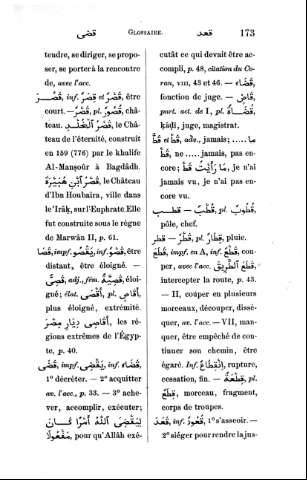 قضى GLOSSAIRE. قعد 173
tendre, se diriger, se propo-
ser, se porter à la rencontre
de, avec l'acc.
قَصُرَ, inf. قِصَرٌ et قَصْرٌ, être
court. — قَصْرٌ, pl. قُصُورٌ, châ-
teau. قَصْرُ ٱلْخُلْدِ, le Châ-
teau de l'éternité, construit
en 159 (776) par le khalife
Al-Mançoûr à Bagdâdh.
قَصْرُ ٱبْنِ هُبَيْرَةَ, le Château
d'Ibn Houbaïra, ville dans
le 'Irâḳ, sur l'Euphrate. Elle
fut construite sous le règne
de Marwân II, p. 61.
قَصَا, impf. يَقْصُو, inf. قَصْوٌ, être
distant, être éloigné. —
قَصِيٌّ, adj., fém. قَصِيَّةٌ, éloi-
gné; élat. أَقْصَى, pl. أَقَاصٍ,
plus éloigné, extrémité.
أَقَاصِى دِيَارِ مِصْرَ, les ré-
gions extrêmes de l'Égyp-
te, p. 40.
قَضَى, impf. يَقْضِى, inf. قَضَاءٌ,
1° décréter. — 2° acquitter
av. l'acc., p. 33. — 3° ache-
ver, accomplir, exécuter;
لِيَقْضِىَ ٱللّٰهُ أَمْرًا كَانَ
مَفْعُولًا, pour qu'Allâh exé-
cutât ce qui devait être ac-
compli, p. 48, citation du Co-
ran, VIII, 43 et 46. — قَضَاءٌ,
fonction de juge. — قَاضٍ,
part. act. de I, pl. قُضَاةٌ,
ḳâḍi, juge, magistrat.
قَطُّ et قَطْ, adv., jamais; مَا.....
قَطُّ, ne ..... jamais, pas en-
core; مَا رَأَيْتُ قَطُّ, je n'ai
jamais vu, je n'ai pas en-
core vu.
قطب — قُطْبٌ, pl. قُطُوبٌ,
pôle, chef.
قطر — قَطْرٌ, pl. قِطَارٌ, pluie.
قَطَعَ, impf. en A, inf. قَطْعٌ, cou-
per, avec l'acc. قَطَعَ ٱلطَّرِيقَ,
intercepter la route, p. 43.
— II, couper en plusieurs
morceaux, découper, dissé-
quer, av. l'acc. — VII, man-
quer, être empêché de con-
tinuer son chemin, être
égaré. Inf. إِنْقِطَاعٌ, rupture,
cessation, fin. — قِطْعَةٌ, pl.
قِطَعٌ, morceau, fragment,
corps de troupes.
قَعَدَ, inf. قُعُودٌ, 1° s'asseoir. —
2° siéger pour rendre la jus-